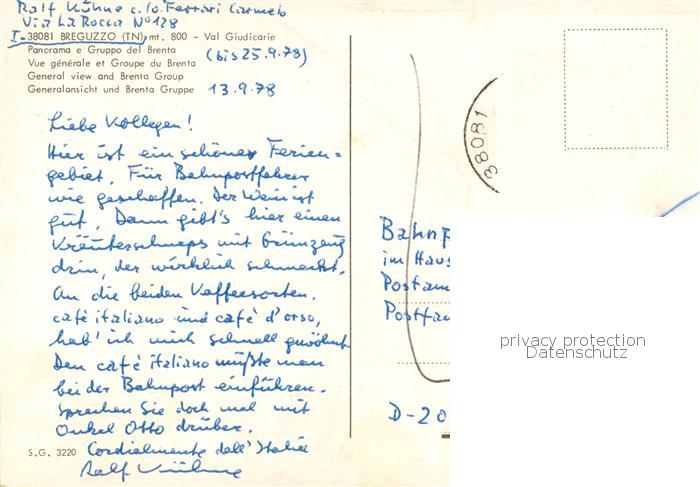 Ralf Kühne c/o. Ferrari Carmelo
Via La Rocca N° 128
I-38081 BREGUZZO (TN) mt. 800 - Val Giudicarie
Panorama e Gruppo del Brenta
Vue générale et Groupe du Brenta
General view and Brenta Group
Generalansicht und Brenta Gruppe
(bis 25.9.78)
13.9.78
Liebe Kollegen!
Hier ist ein schönes Ferien=
gebiet. Für Bahnpostfahrer
wie geschaffen. Der Wein ist
gut. Dann gibt's hier einen
Kräuterschnaps mit Grünzeug
drin, der wirklich schmeckt.
An die beiden Kaffeesorten,
café italiano und café d'orso,
hab' ich mich schnell gewöhnt.
Den café italiano müßte man
bei der Bahnpost einführen.
Sprechen Sie doch mal mit
Onkel Otto drüber.
Cordialmente dall' Italia
Ralf Kühne
S.G. 3220
38081
Bahnp
im Haus
Postam
Postfa
D-20
privacy protection
Datenschutz